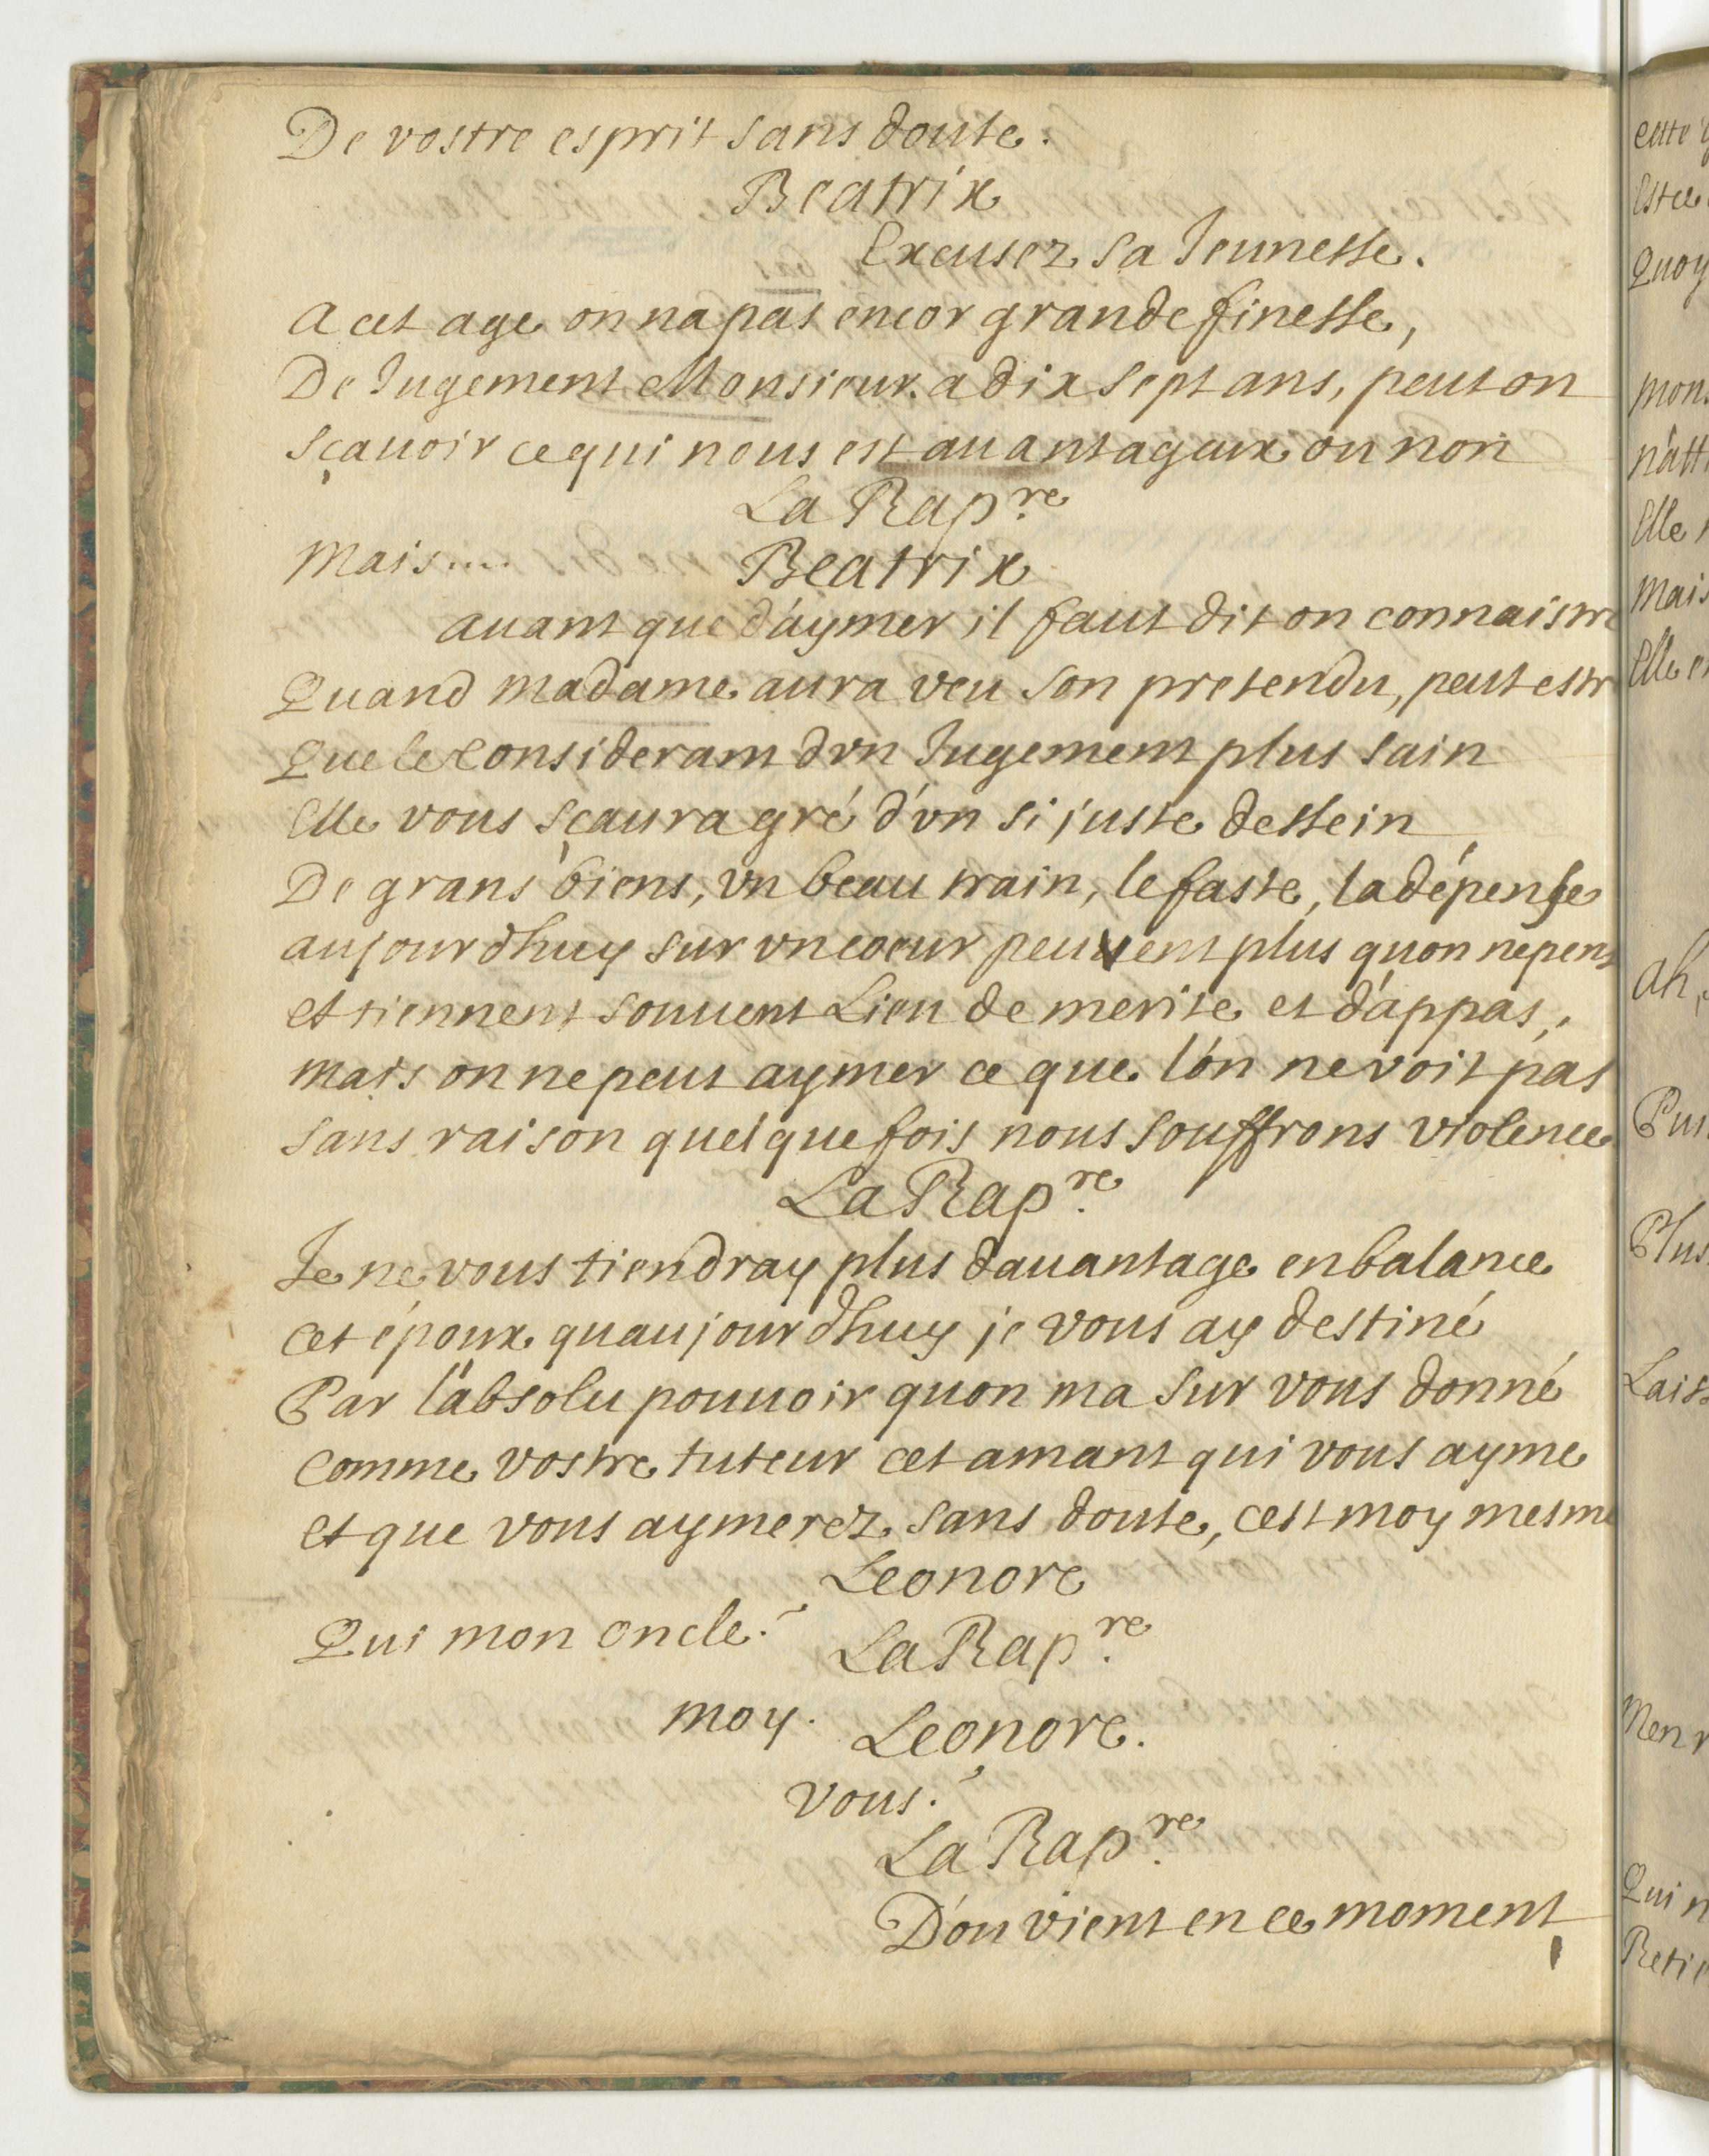 De vostre esprit sans doute.
Beatrix
Excusez sa Jeunesse.
A cet age on na pas encor grande finesse,
De Jugement Monsieur. a dix sept ans, peut on
sçauoir ce qui nous est auantageux ou non
La Rap.re
Mais....
Beatrix
auant que d'aymer il faut dit on connaistre
Quand madame aura veu son pretendu, peut estr
Que le Considerant dvn Jugement plus sain
Elle vous sçaura gré d'vn si juste dessein
De grans biens, vn beau train, le faste, la dépense
aujourdhuy sur vn coeur peuvent plus quon ne pens
et tiennent souuent Lieu de merite et d'appas,
mais on ne peut aymer ce que l'on ne voit pas
sans raison quelque fois nous souffrons violence
La Rap.re
Je ne vous tiendray plus dauantage en balance
cet époux quaujourdhuy je vous ay destiné
Par l'absolu pouuoir quon ma sur vous donné
comme vostre tuteur cet amant qui vous ayme
et que vous aymerez sans doute, cest moy mesme
Leonore
Qui mon oncle?
La Rap.re
moy.
Leonore.
vous?
La Rap.re
D'ou vient en ce moment
cette
Estce
Quoy
mon
n'att
Elle
Mais
Elle
Ah,
Plus
Laiss
Men
Qui